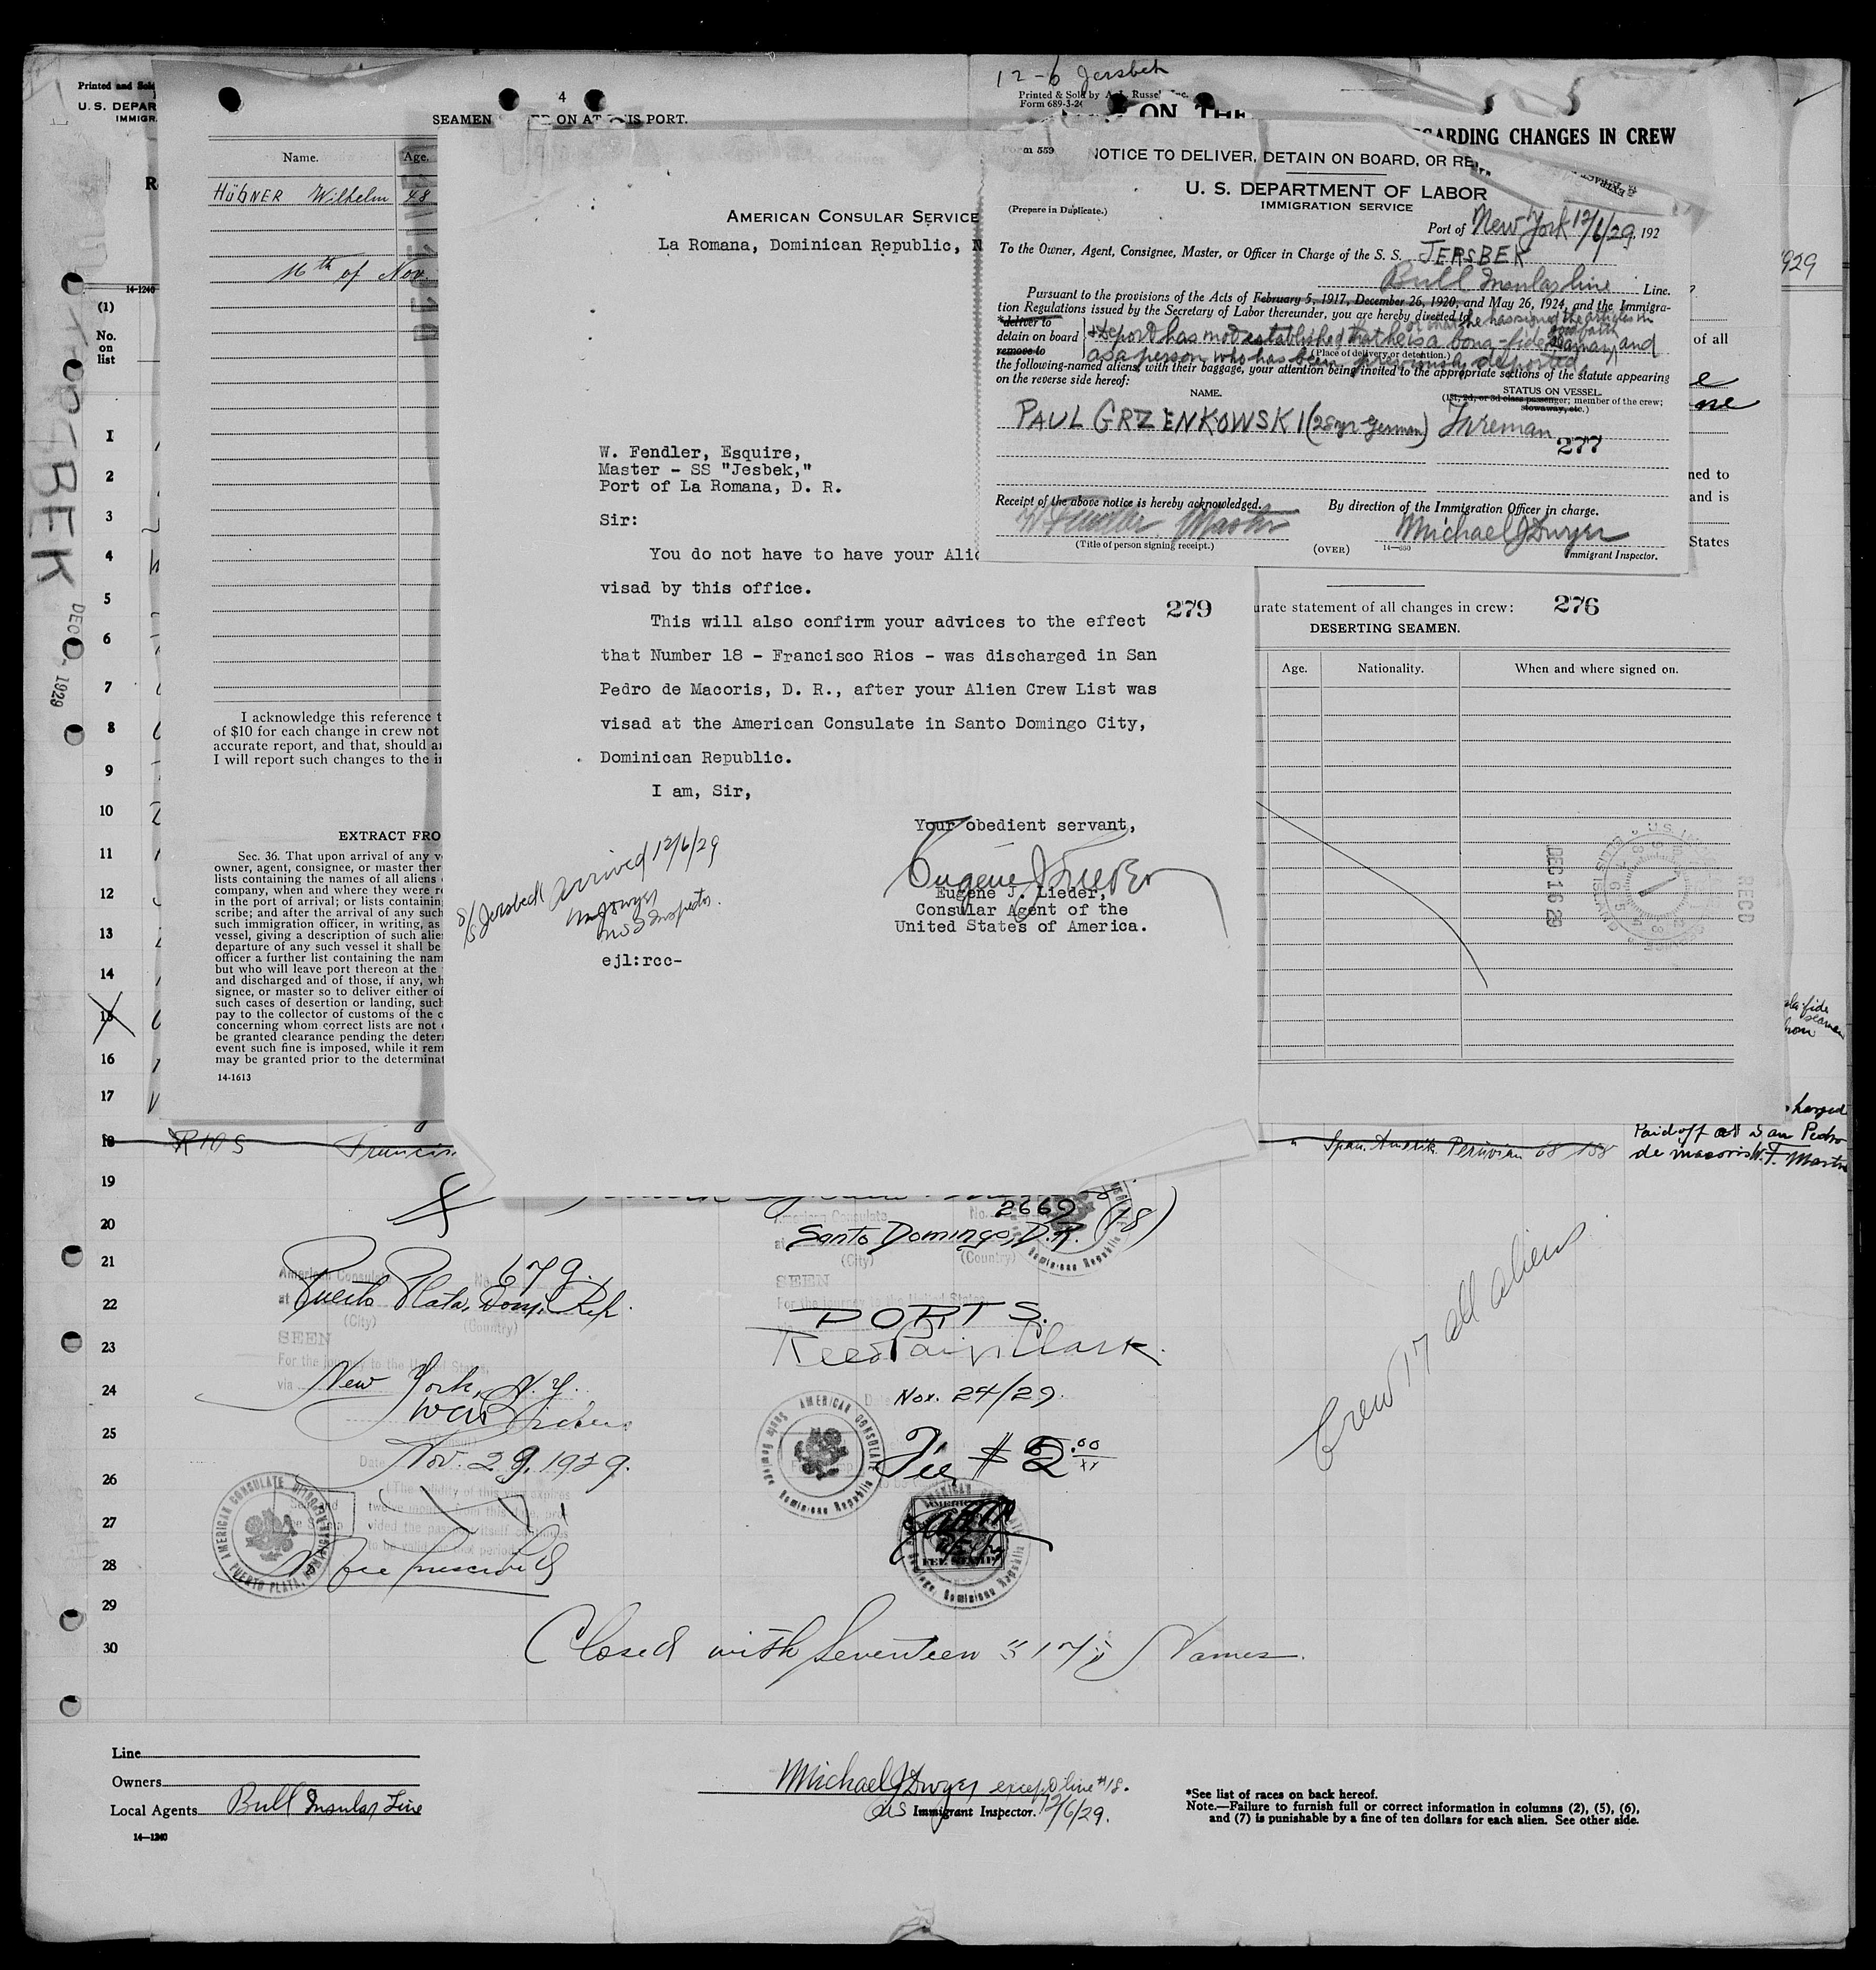 12-6 Jersbek
Printed and Sold
U. S. DEPAR
IMMIGR
14-1240
(1)
No.
on
list
1
2
3
4
5
6
7
8
9
10
11
12
13
14
15
16
17
18
19
20
21
22
23
24
25
26
27
28
29
30
JERSBEK
DEC 1929
4
SEAMEN ON AT THIS PORT.
Name. Age.
HÜBNER Wilhelm 48
16th of Nov.
I acknowledge this reference t
of $10 for each change in crew not
accurate report, and that, should a
I will report such changes to the i
EXTRACT FRO
Sec. 36. That upon arrival of any v
owner, agent, consignee, or master ther
lists containing the names of all aliens
company, when and where they were r
in the port of arrival; or lists containin
scribe; and after the arrival of any such
such immigration officer, in writing, as
vessel, giving a description of such alie
departure of any such vessel it shall be
officer a further list containing the nam
but who will leave port thereon at the
and discharged and of those, if any, wh
signee, or master so to deliver either of
such cases of desertion or landing, such
pay to the collector of customs of the c
concerning whom correct lists are not
be granted clearance pending the deter
event such fine is imposed, while it rem
may be granted prior to the determinat
14-1613
AMERICAN CONSULAR SERVICE
La Romana, Dominican Republic, N
W. Fendler, Esquire,
Master - SS "Jesbek,"
Port of La Romana, D. R.
Sir:
You do not have to have your Alie
visad by this office.
279
This will also confirm your advices to the effect
that Number 18 - Francisco Rios - was discharged in San
Pedro de Macoris, D. R., after your Alien Crew List was
visad at the American Consulate in Santo Domingo City,
Dominican Republic.
I am, Sir,
Your obedient servant,
Eugene J. Lieder
Eugene J. Lieder,
Consular Agent of the
United States of America.
S/S Jersbeck arrived 12/6/29
MJ Dwyer
Inspector.
ejl:rcc-
Printed & Sold by A. L. Russell Inc.
Form 689-3-24
ON THE
GARDING CHANGES IN CREW
Form 559
NOTICE TO DELIVER, DETAIN ON BOARD, OR RE
U. S. DEPARTMENT OF LABOR
IMMIGRATION SERVICE
(Prepare in Duplicate.)
Port of New York 12/6/29, 192
To the Owner, Agent, Consignee, Master, or Officer in Charge of the S. S. JERSBEK
Bull Insular Line Line.
Pursuant to the provisions of the Acts of February 5, 1917, December 26, 1920, and May 26, 1924, and the Immigra-
tion Regulations issued by the Secretary of Labor thereunder, you are hereby directed to
or that he has signed the articles in good faith
*deliver to
detain on board
remove to
& deport has not established that he is a bona-fide seaman, and
as a person who has been previously deported,
(Place of delivery or detention.)
the following-named aliens, with their baggage, your attention being invited to the appropriate sections of the statute appearing
on the reverse side hereof:
NAME. STATUS ON VESSEL.
(1st, 2d, or 3d class passenger; member of the crew;
stowaway, etc.)
PAUL GRZENKOWSKI (28 yr German) Fireman
277
Receipt of the above notice is hereby acknowledged. By direction of the Immigration Officer in charge.
W Fendler Master Michael J Dwyer
(Title of person signing receipt.) (OVER) 14-650 Immigrant Inspector.
1929
of all
ned to
and is
States
urate statement of all changes in crew: 276
DESERTING SEAMEN.
Age. Nationality. When and where signed on.
DEC 16 29
RECD
RIOS Francis
" Span. Amerik. Peruvian 68 158
harged
Paid off at San Pedro
de macoris W. F. Master
American Consulate No. 2669 (18)
at Santo Domingo, D.R.
(City) (Country)
SEEN
For the journey to the United States
PORTS.
Reed Paige Clark.
Date Nov. 24/29.
Fee $ 2.00
AMERICAN CONSULATE
Santo Domingo Dominican Republic
FEE STAMP
American Consulate No. 679.
at Puerto Plata, Dom. Rep.
(City) (Country)
SEEN
For the journey to the United States,
via New York, N.Y.
Date Nov. 29, 1929.
(The validity of this visa expires
twelve months from this date, pro-
vided the passport itself continues
to be valid for that period.)
No fee prescribed
AMERICAN CONSULATE
PUERTO PLATA,
Crew 17 all aliens
Closed with Seventeen "17" Names.
Line
Owners
Local Agents Bull Insular Line
14—1240
Michael J Dwyer except line #18.
US Immigrant Inspector. 12/6/29.
*See list of races on back hereof.
Note.—Failure to furnish full or correct information in columns (2), (5), (6),
and (7) is punishable by a fine of ten dollars for each alien. See other side.